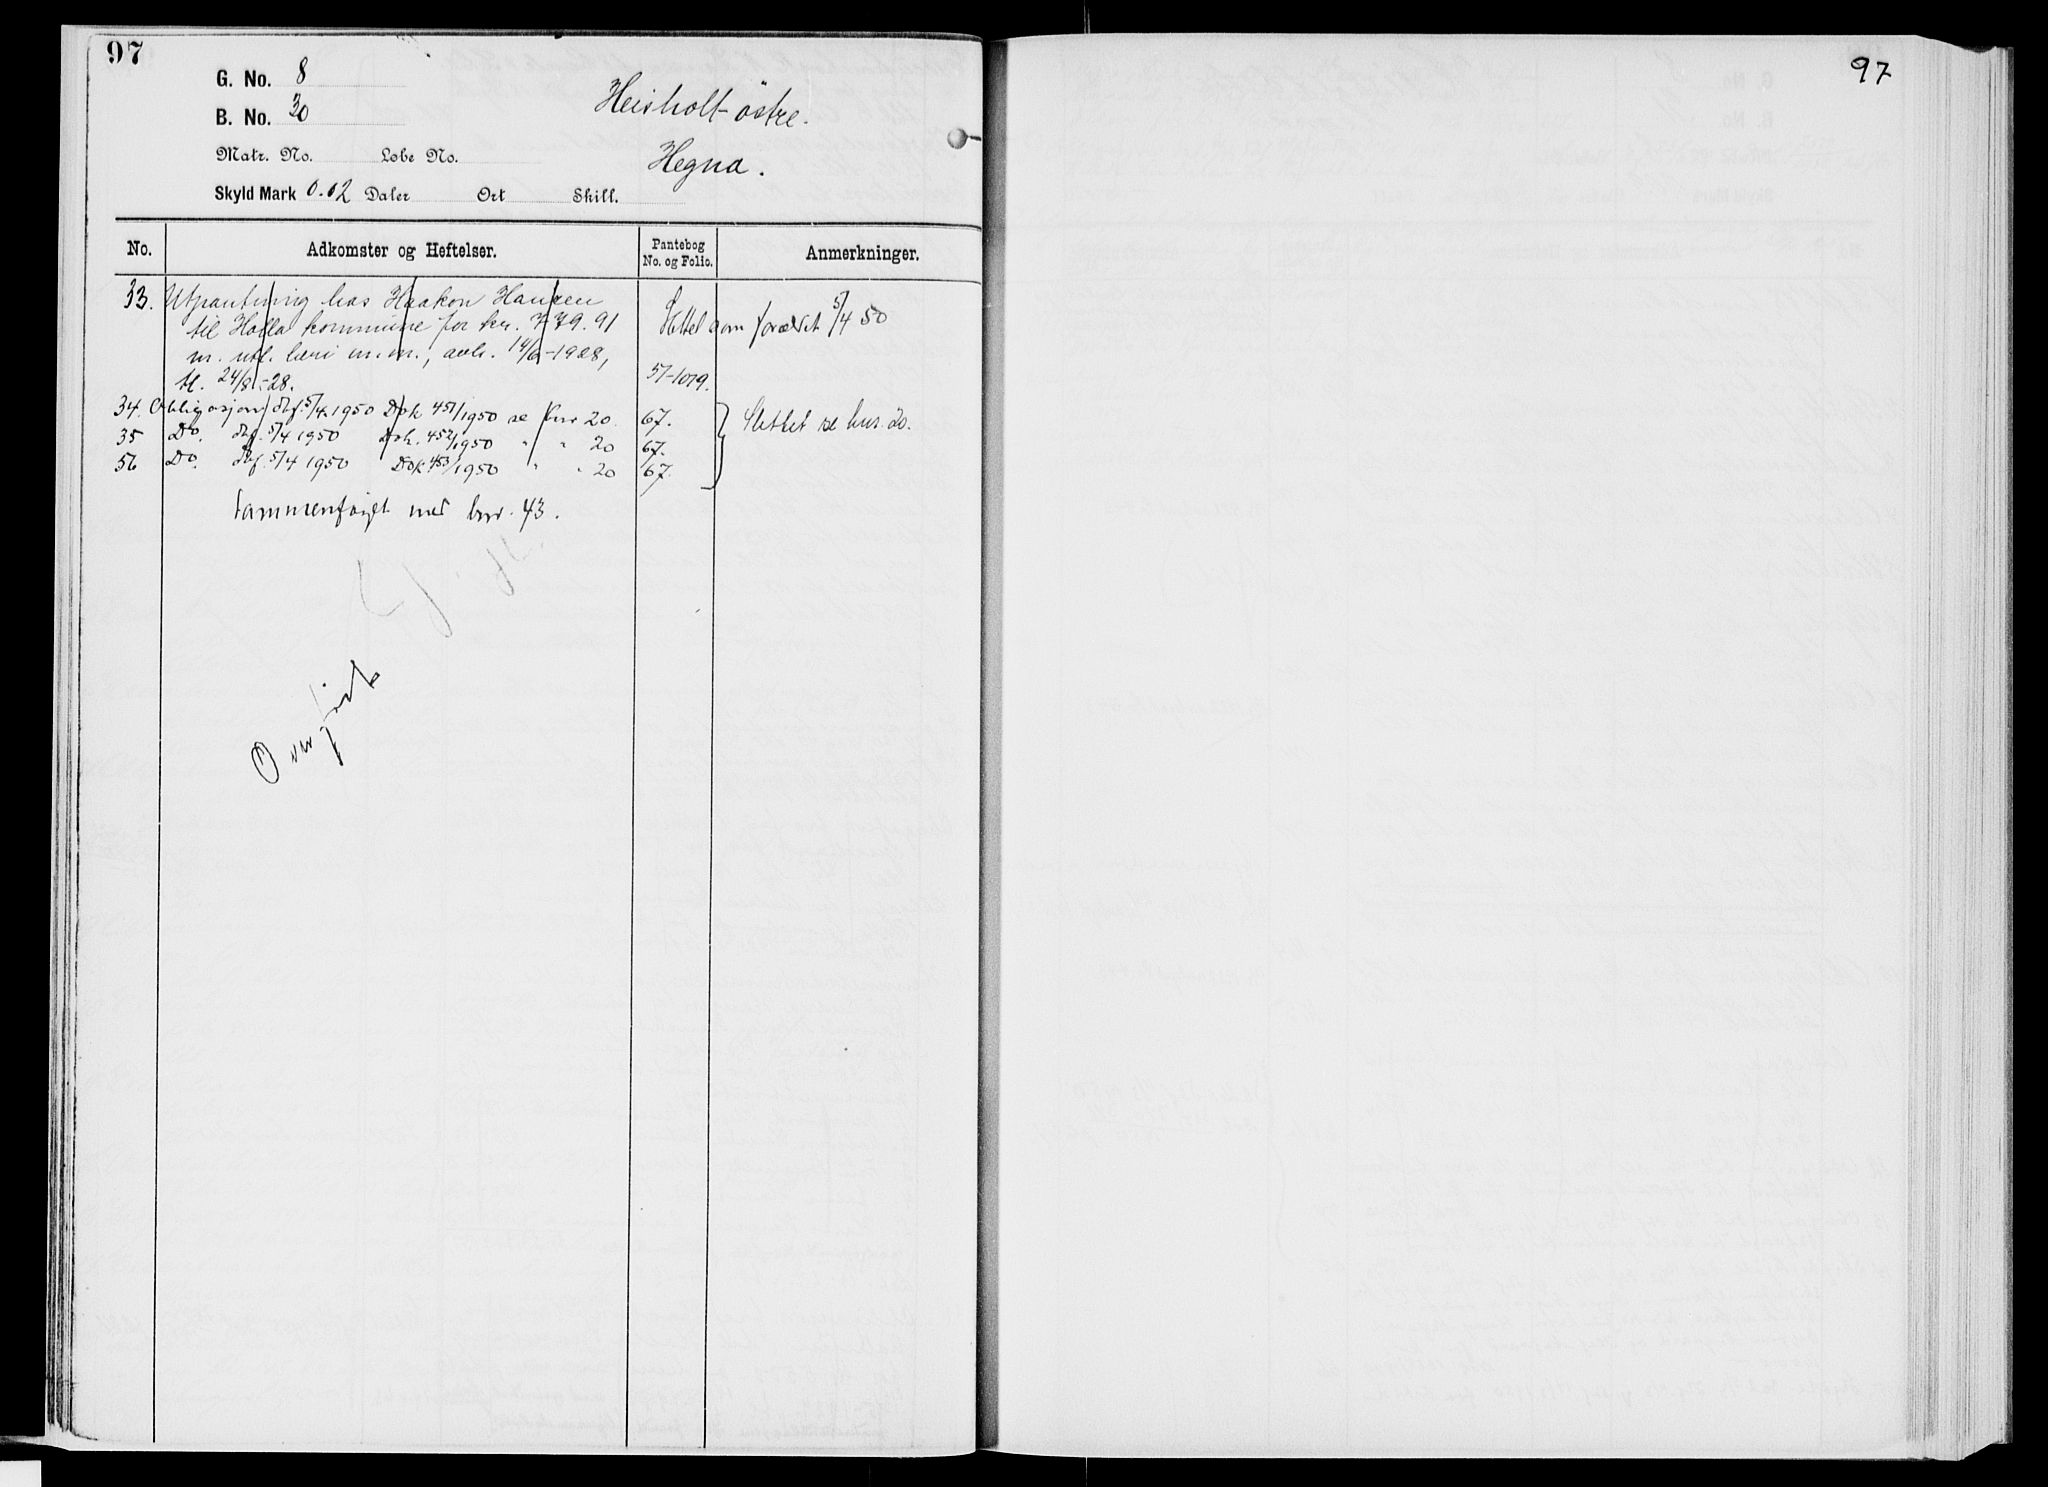 97
97
G. No. 8
B. No. 30
Heisholt östre.
Hegna.
Matr. No. Løbe No.
Skyld Mark 0.02 Daler Ort Skill.
No. Adkomster og Heftelser. Pantebog No. og Folio. Anmerkninger.
33. Utpantning hos Haakon Hansen
til Holla kommune for kr. 779.91 Slettet som foreldet 5/4 50
m. utl. læri m.m., avh. 14/6-1928,
tl. 24/8-28. 57-1079.
34. Obligasjon dgf. 5/4 1950 Dok 451/1950 se bnr 20. 67. Slettet se bnr 20.
35 Do. dgf. 5/4 1950 Dok. 452/1950 " " 20 67.
56 Do. dgf. 5/4 1950 Dok 453/1950 " " 20 67.
Sammenføiet med bnr. 43.
Overført